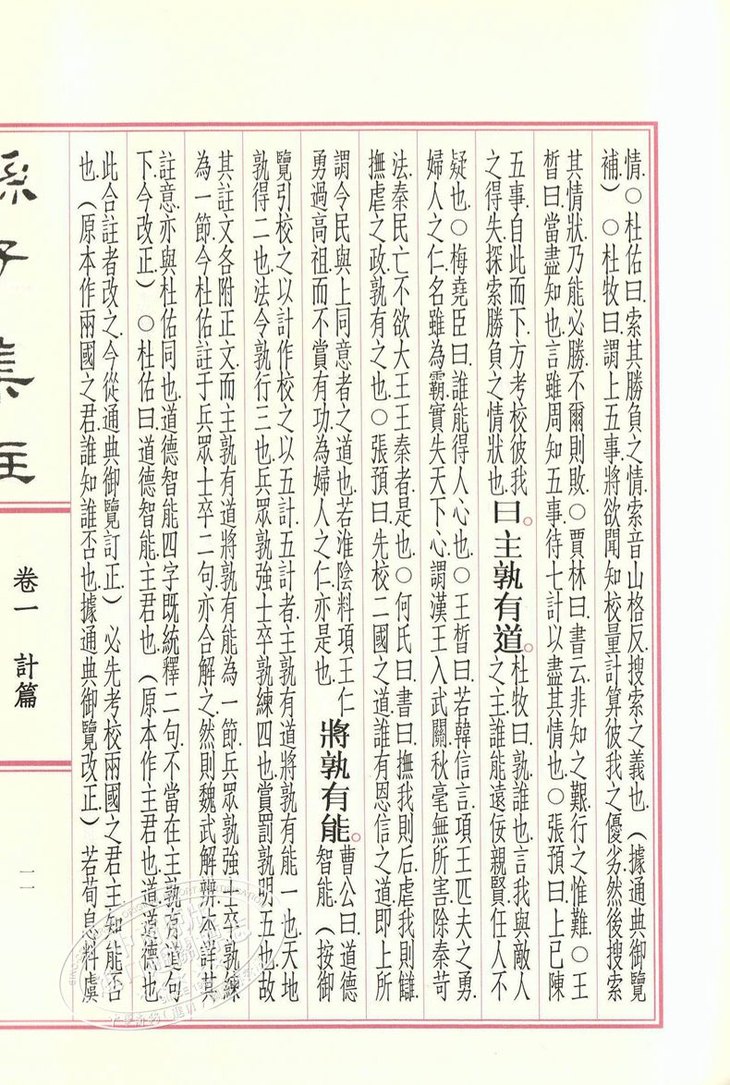 情○杜佑曰索其勝負之情索音山格反搜索之義也（據通典御覽
補）○杜牧曰謂上五事將欲聞知校量計算彼我之優劣然後搜索
其情狀乃能必勝不爾則敗○賈林曰書云非知之艱行之惟難○王
晳曰當盡知也言雖周知五事待七計以盡其情也○張預曰上已陳
五事自此而下方考校彼我
之得失探索勝負之情狀也
曰。主孰有道。
杜牧曰孰誰也言我與敵人
之主誰能遠佞親賢任人不
疑也○梅堯臣曰誰能得人心也○王晳曰若韓信言項王匹夫之勇
婦人之仁名雖為霸實失天下心謂漢王入武關秋毫無所害除秦苛
法秦民亡不欲大王王秦者是也○何氏曰書曰撫我則后虐我則讎
撫虐之政孰有之也○張預曰先校二國之道誰有恩信之道即上所
謂令民與上同意者之道也若淮陰料項王仁
勇過高祖而不賞有功為婦人之仁亦是也
將孰有能。
曹公曰道德
智能（按御
覽引校之以計作校之以五計五計者主孰有道將孰有能一也天地
孰得二也法令孰行三也兵眾孰強士卒孰練四也賞罰孰明五也故
其註文各附正文而主孰有道將孰有能為一節兵眾孰強士卒孰練
為一節今杜佑註于兵眾士卒二句亦合解之然則魏武解辨本詳其
註意亦與杜佑同也道德智能四字既統釋二句不當在主孰有道句
下今改正）○杜佑曰道德智能主君也（原本作主君也道道德也
此合註者改之今從通典御覽訂正）必先考校兩國之君主知能否
也（原本作兩國之君誰知誰否也據通典御覽改正）若荀息料虞
孫子集注
卷一 計篇
一一